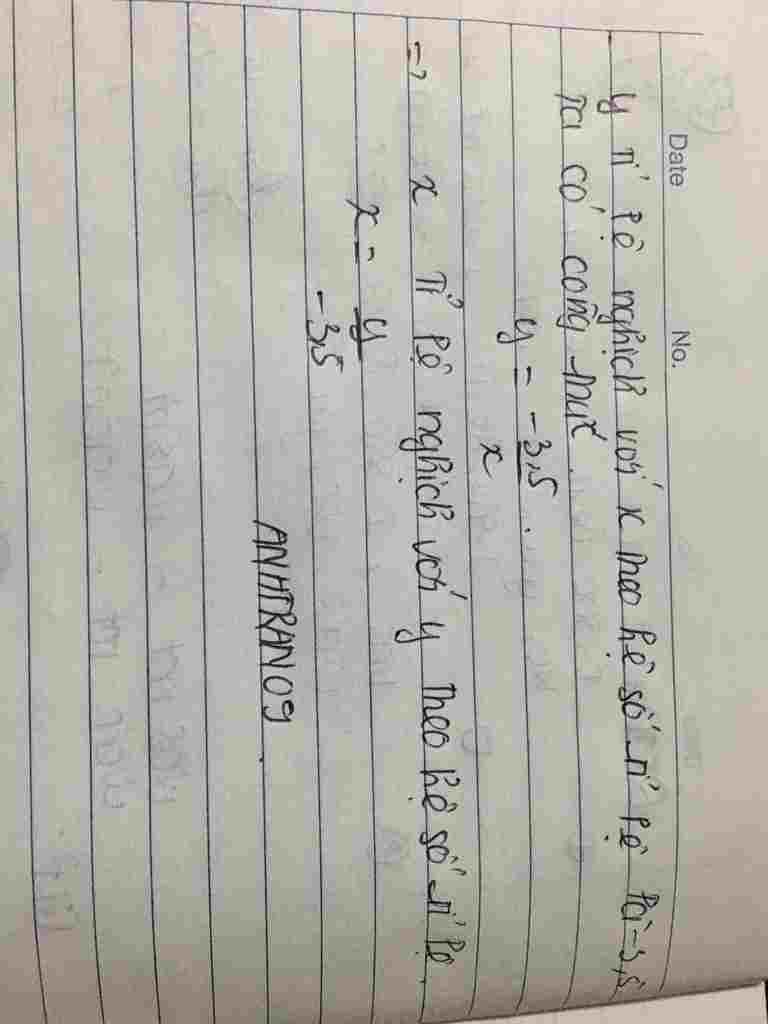 Date No.
y tỉ lệ nghịch với x theo hệ số tỉ lệ là -3,5
Ta có công thức
y = -3,5 / x
=> x tỉ lệ nghịch với y theo hệ số tỉ lệ
x = y / -3,5
ANHTRAN09